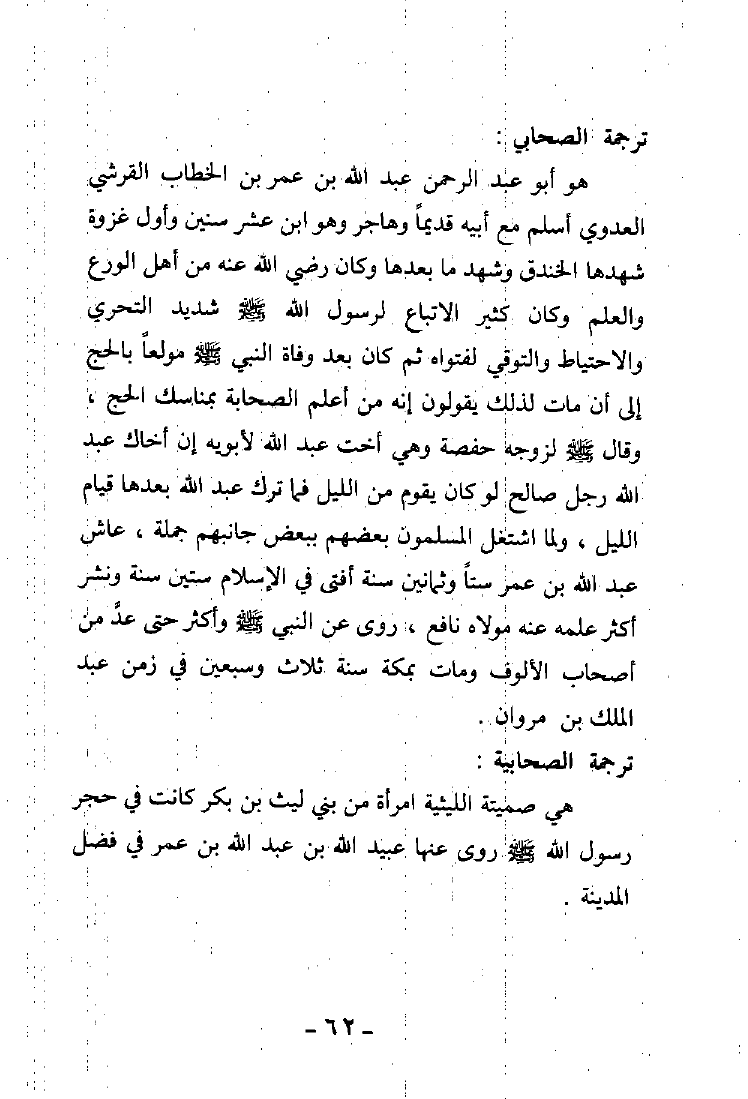 ترجمة الصحابي :
هو أبو عبد الرحمن عبد الله بن عمر بن الخطاب القرشي
العدوي أسلم مع أبيه قديماً وهاجر وهو ابن عشر سنين وأول غزوة
شهدها الخندق وشهد ما بعدها وكان رضي الله عنه من أهل الورع
والعلم وكان كثير الاتباع لرسول الله ﷺ شديد التحري
والاحتياط والتوقي لفتواه ثم كان بعد وفاة النبي ﷺ مولعاً بالحج
إلى أن مات لذلك يقولون إنه من أعلم الصحابة بمناسك الحج ،
وقال ﷺ لزوجه حفصة وهي أخت عبد الله لأبويه إن أخاك عبد
الله رجل صالح لو كان يقوم من الليل فما ترك عبد الله بعدها قيام
الليل ، ولما اشتغل المسلمون بعضهم ببعض جانبهم جملة ، عاش
عبد الله بن عمر ستاً وثمانين سنة أفتى في الإسلام ستين سنة ونشر
أكثر علمه عنه مولاه نافع ، روى عن النبي ﷺ وأكثر حتى عدَّ من
أصحاب الألوف ومات بمكة سنة ثلاث وسبعين في زمن عبد
الملك بن مروان .
ترجمة الصحابية :
هي صميتة الليثية امرأة من بني ليث بن بكر كانت في حجر
رسول الله ﷺ روى عنها عبيد الله بن عبد الله بن عمر في فضل
المدينة .
- ٦٢ -